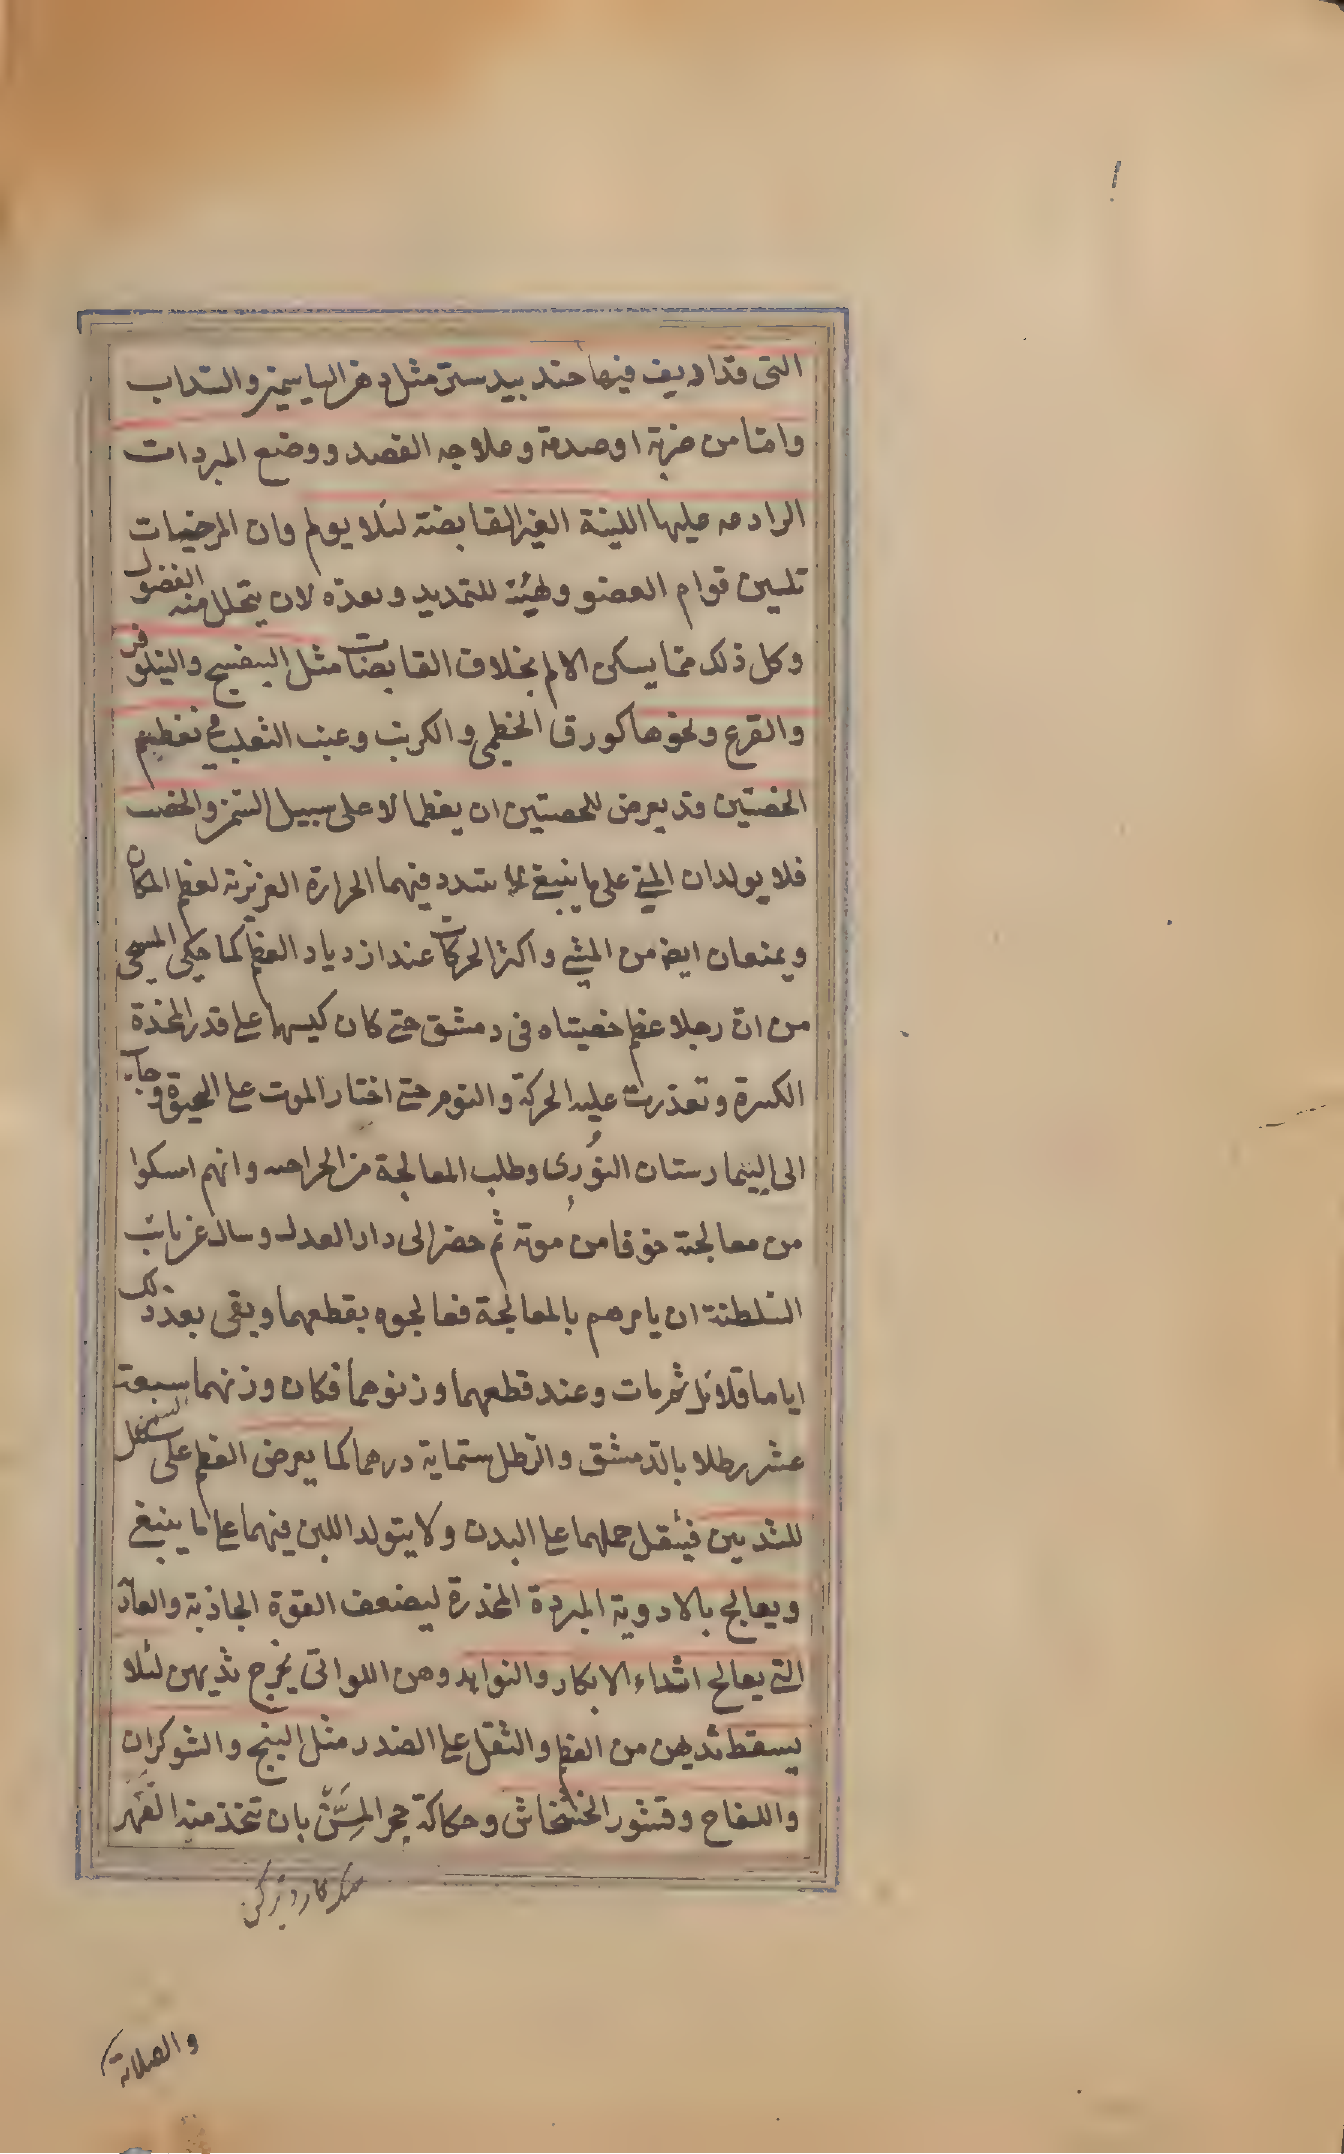 التى قد اديف فيها جند بيدستر مثل دهن الياسمين والسداب
واما من ضربة او صدمة وعلاجه الفصد ووضع المبردات
الرادعه عليها اللينة الغير القابضة لئلا يولم وان المرخيات
تليين قوام العضو ولهيئة للتمديد وبعده لان يتحلل منه الفضول
وكل ذلك مما يسكن الالم بخلاف القابضات مثل البنفسج والنيلوفر
والقرع ونحوها كورق الخطمى والكرنب وعنب الثعلب فى تعظيم
الخصيتين قد يعرض للخصيتين ان يعظما لا على سبيل التمزر والخصب
فلا يولدان المنى على ما ينبغى لما يتبدد فيهما الحرارة الغريزية لعظم المكان
ويمنعان ايض من المشى واكثر الحركات عند ازدياد العظم كما حكى المسيحى
من ان رجلا عظم خصيتاه فى دمشق حتى كان كيسهما على قدر المخدة
الكبيرة وتعذرت عليه الحركة والنوم حتى اختار الموت على الحيوة وجاء
الى البيمارستان النُورى وطلب المعالجة من الجراحيه وانهم امسكوا
من معالجته خوفا من موته ثم حضر الى دار العدل وسال عن نائب
السلطنة ان يامرهم بالمعالجة فعالجوه بقطعهما وبقى بعد ذلك
اياما قلائل ثم مات وعند قطعهما وزنوهما فكان وزنهما سبعة
عشر رطلا بالدمشق والرطل ستماية درهما كما يعرض العظم على سبيل السمن
للثديين فيثقل حملهما على البدن ولا يتولد اللبن فيهما على ما ينبغى
ويعالج بالادوية المبردة المخدرة ليضعف القوة الجاذبة والعاد
التى يعالج اثداء الابكار والنواهد وهن اللواتى يخرج ثديهن لئلا
يسقط ثديهن من العظم والثقل على الصدر مثل البنج والشوكران
واللفاح وقشور الخشخاش وحكاكة حجر المِسَنّ بان تتخذ منه الفهر
سنک کارد تیز کن
والصلاية